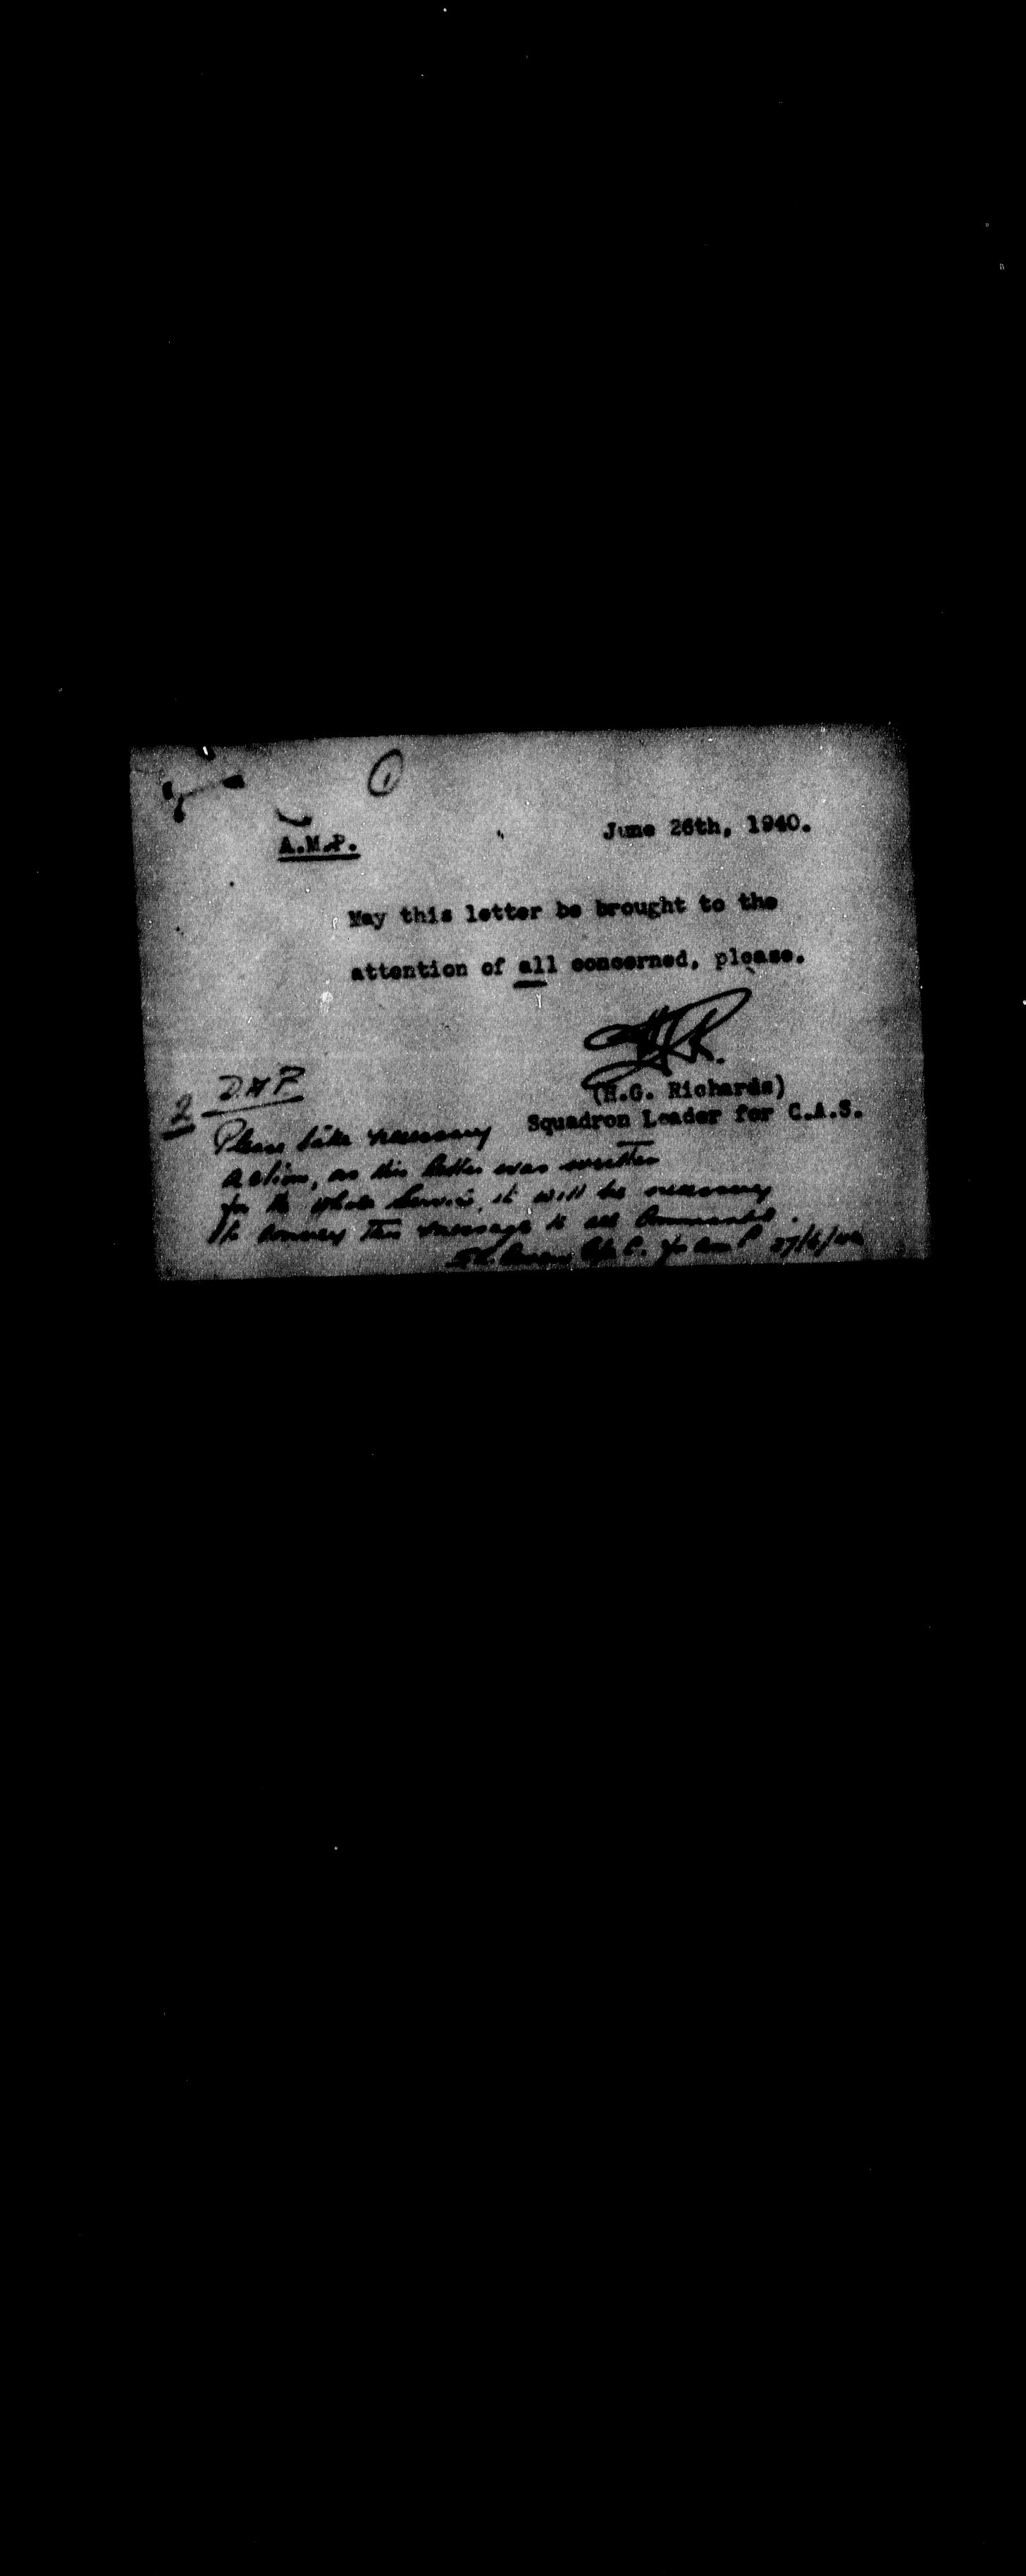 1
A.M.P.
June 26th, 1940.
May this letter be brought to the
attention of all concerned, please.
(H.G. Richards)
Squadron Leader for C.A.S.
2
Please take necessary
action, as this letter was written
for the whole Service, it will be necessary
to convey this message to all Commands.
27/6/40